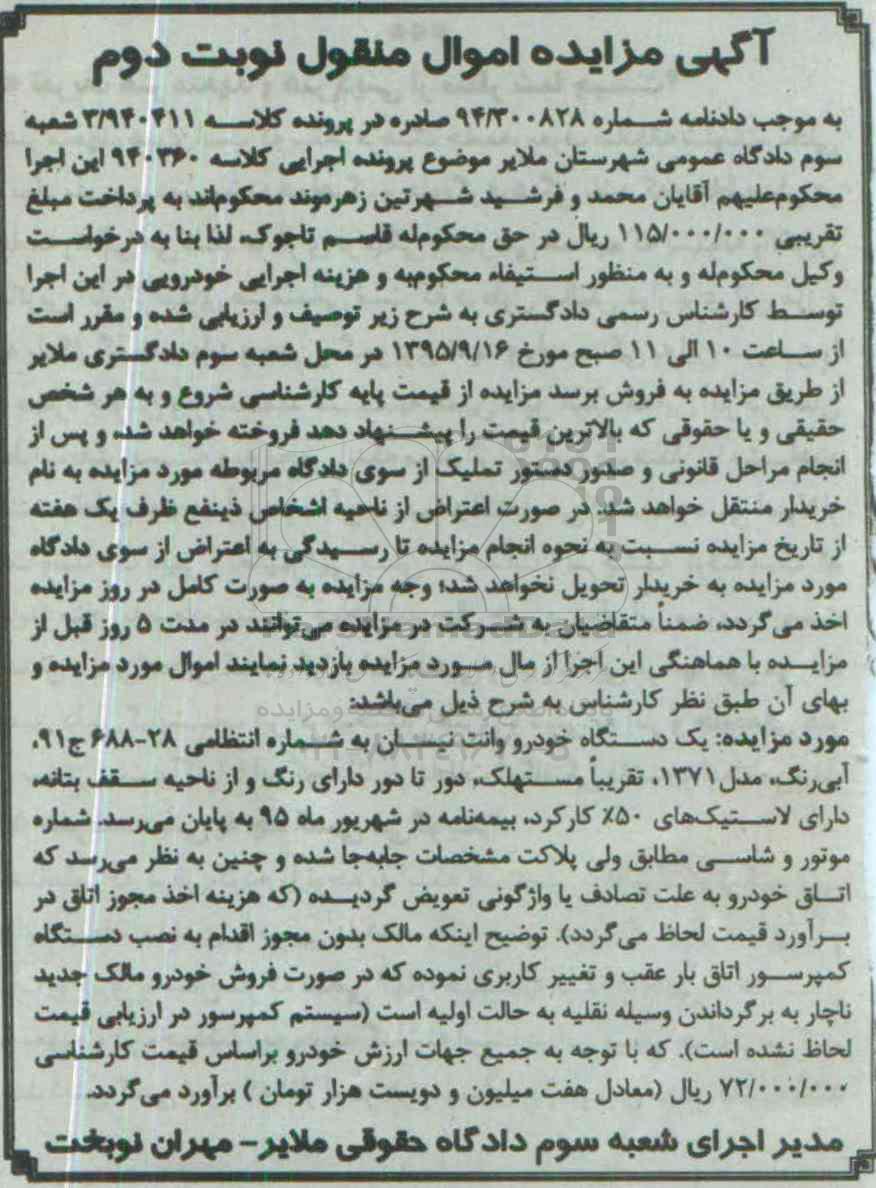 آگهی مزایده اموال منقول نوبت دوم
به موجب دادنامه شماره ۹۴/۳۰۰۸۲۸ صادره در پرونده کلاسه ۳/۹۴۰۴۱۱ شعبه
سوم دادگاه عمومی شهرستان ملایر موضوع پرونده اجرایی کلاسه ۹۴۰۳۶۰ این اجرا
محکوم‌علیهم آقایان محمد و فرشید شهرتین زهرموند محکوم‌اند به پرداخت مبلغ
تقریبی ۱۱۵/۰۰۰/۰۰۰ ریال در حق محکوم‌له قاسم تاجوک، لذا بنا به درخواست
وکیل محکوم‌له و به منظور استیفاء محکوم‌به و هزینه اجرایی خودرویی در این اجرا
توسط کارشناس رسمی دادگستری به شرح زیر توصیف و ارزیابی شده و مقرر است
از ساعت ۱۰ الی ۱۱ صبح مورخ ۱۳۹۵/۹/۱۶ در محل شعبه سوم دادگستری ملایر
از طریق مزایده به فروش برسد مزایده از قیمت پایه کارشناسی شروع و به هر شخص
حقیقی و یا حقوقی که بالاترین قیمت را پیشنهاد دهد فروخته خواهد شد، و پس از
انجام مراحل قانونی و صدور دستور تملیک از سوی دادگاه مربوطه مورد مزایده به نام
خریدار منتقل خواهد شد. در صورت اعتراض از ناحیه اشخاص ذینفع ظرف یک هفته
از تاریخ مزایده نسبت به نحوه انجام مزایده تا رسیدگی به اعتراض از سوی دادگاه
مورد مزایده به خریدار تحویل نخواهد شد؛ وجه مزایده به صورت کامل در روز مزایده
اخذ می‌گردد، ضمناً متقاضیان به شرکت در مزایده می‌توانند در مدت ۵ روز قبل از
مزایده با هماهنگی این اجرا از مال مورد مزایده بازدید نمایند اموال مورد مزایده و
بهای آن طبق نظر کارشناس به شرح ذیل می‌باشد:
مورد مزایده: یک دستگاه خودرو وانت نیسان به شماره انتظامی ۲۸-۶۸۸ ج۹۱،
آبی‌رنگ، مدل۱۳۷۱، تقریباً مستهلک، دور تا دور دارای رنگ و از ناحیه سقف بتانه،
دارای لاستیک‌های ۵۰٪ کارکرد، بیمه‌نامه در شهریور ماه ۹۵ به پایان می‌رسد. شماره
موتور و شاسی مطابق ولی پلاکت مشخصات جابه‌جا شده و چنین به نظر می‌رسد که
اتاق خودرو به علت تصادف یا واژگونی تعویض گردیده (که هزینه اخذ مجوز اتاق در
برآورد قیمت لحاظ می‌گردد). توضیح اینکه مالک بدون مجوز اقدام به نصب دستگاه
کمپرسور اتاق بار عقب و تغییر کاربری نموده که در صورت فروش خودرو مالک جدید
ناچار به برگرداندن وسیله نقلیه به حالت اولیه است (سیستم کمپرسور در ارزیابی قیمت
لحاظ نشده است). که با توجه به جمیع جهات ارزش خودرو براساس قیمت کارشناسی
۷۲/۰۰۰/۰۰۰ ریال (معادل هفت میلیون و دویست هزار تومان ) برآورد می‌گردد.
مدیر اجرای شعبه سوم دادگاه حقوقی ملایر- مهران نوبخت